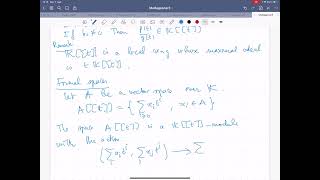 If b₀ ≠ 0 Then f(t)/g(t) ∈ K[[t]]
Remark
K[[t]] is a local ring whose maximal ideal
is t K[[t]]
Formal spaces
Let A be a vector space over K.
A[[t]] = { Σ xᵢ tⁱ , xᵢ ∈ A }
i≥0
The space A[[t]] is a K[[t]]-module
with this action
( Σ aᵢ tⁱ , Σ xⱼ tʲ ) → Σ